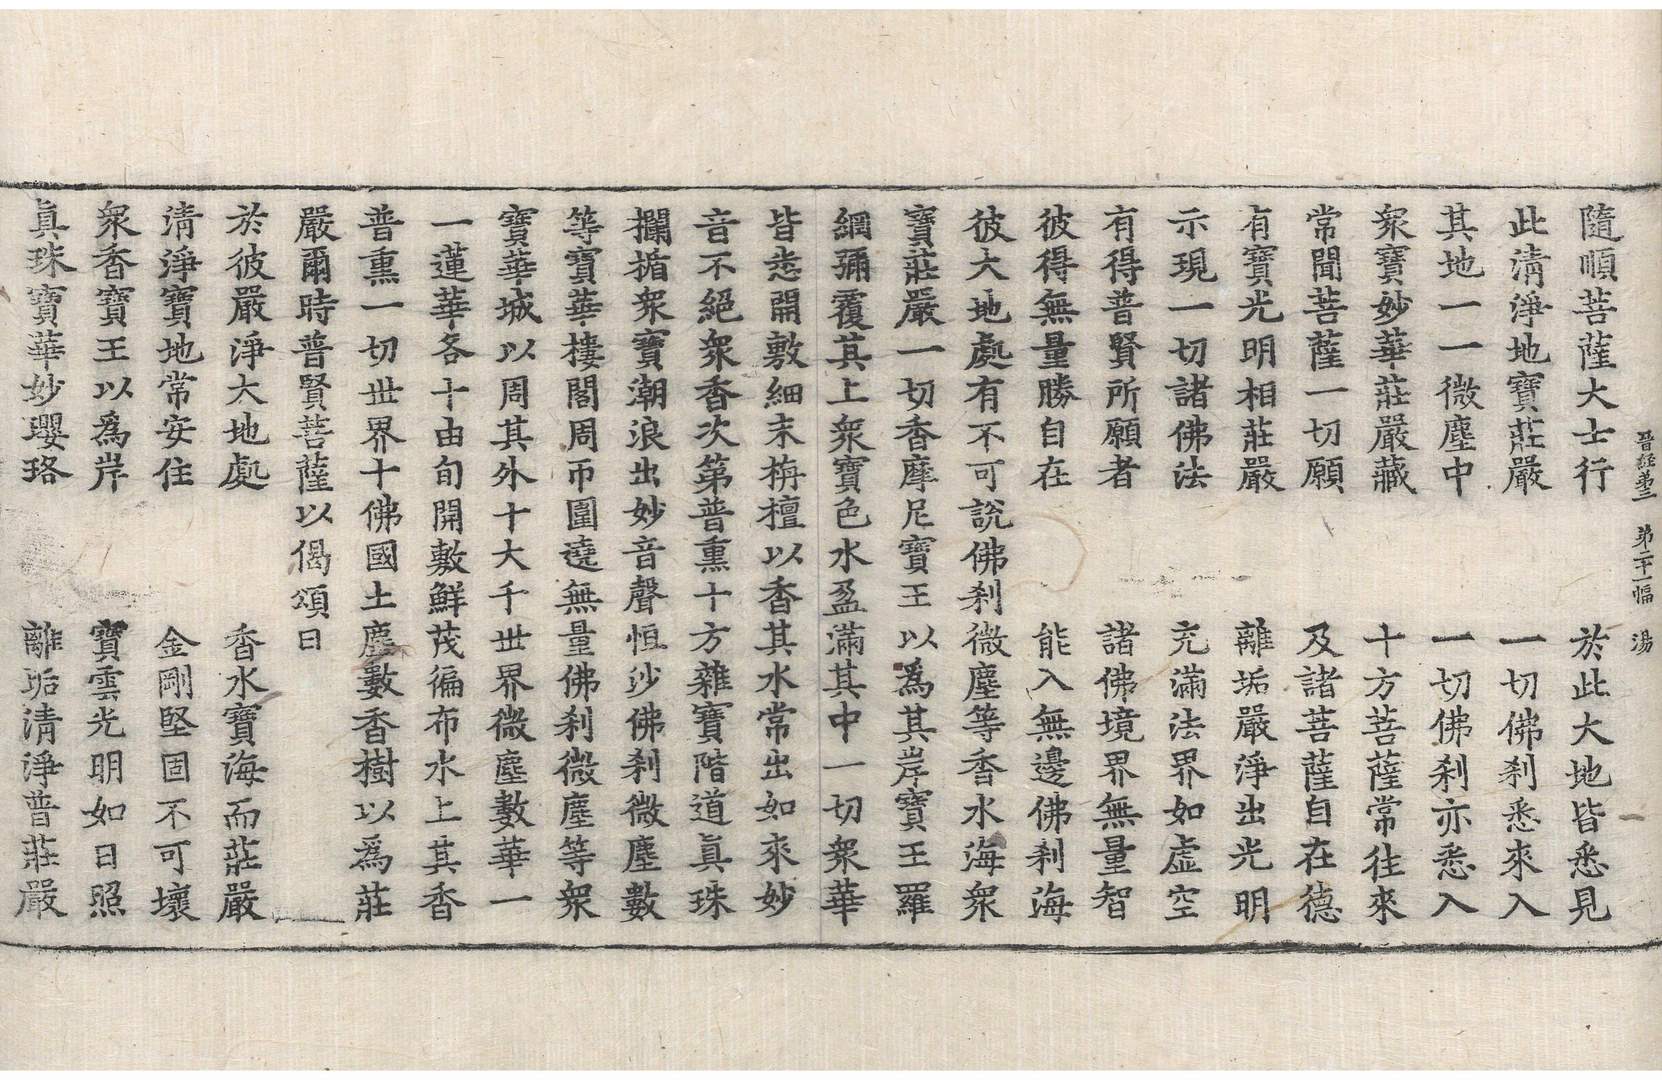 晉經第三　第二十一幅　湯
隨順菩薩大士行　於此大地皆悉見
此清淨地寶莊嚴　一切佛刹悉來入
其地一一微塵中　一切佛刹亦悉入
衆寶妙華莊嚴藏　十方菩薩常往來
常聞菩薩一切願　及諸菩薩自在德
有寶光明相莊嚴　離垢嚴淨出光明
示現一切諸佛法　充滿法界如虛空
有得普賢所願者　諸佛境界無量智
彼得無量勝自在　能入無邊佛刹海
彼大地處有不可說佛刹微塵等香水海衆
寶莊嚴一切香摩尼寶王以爲其岸寶王羅
網彌覆其上衆寶色水盈滿其中一切衆華
皆悉開敷細末栴檀以香其水常出如來妙
音不絕衆香次第普熏十方雜寶階道眞珠
攔楯衆寶潮浪出妙音聲恒沙佛刹微塵數
等寶華樓閣周帀圍遶無量佛刹微塵等衆
寶華城以周其外十大千世界微塵數華一
一蓮華各十由旬開敷鮮茂徧布水上其香
普熏一切世界十佛國土塵數香樹以爲莊
嚴爾時普賢菩薩以偈頌曰
於彼嚴淨大地處　香水寶海而莊嚴
清淨寶地常安住　金剛堅固不可壞
衆香寶王以爲岸　寶雲光明如日照
眞珠寶華妙瓔珞　離垢清淨普莊嚴